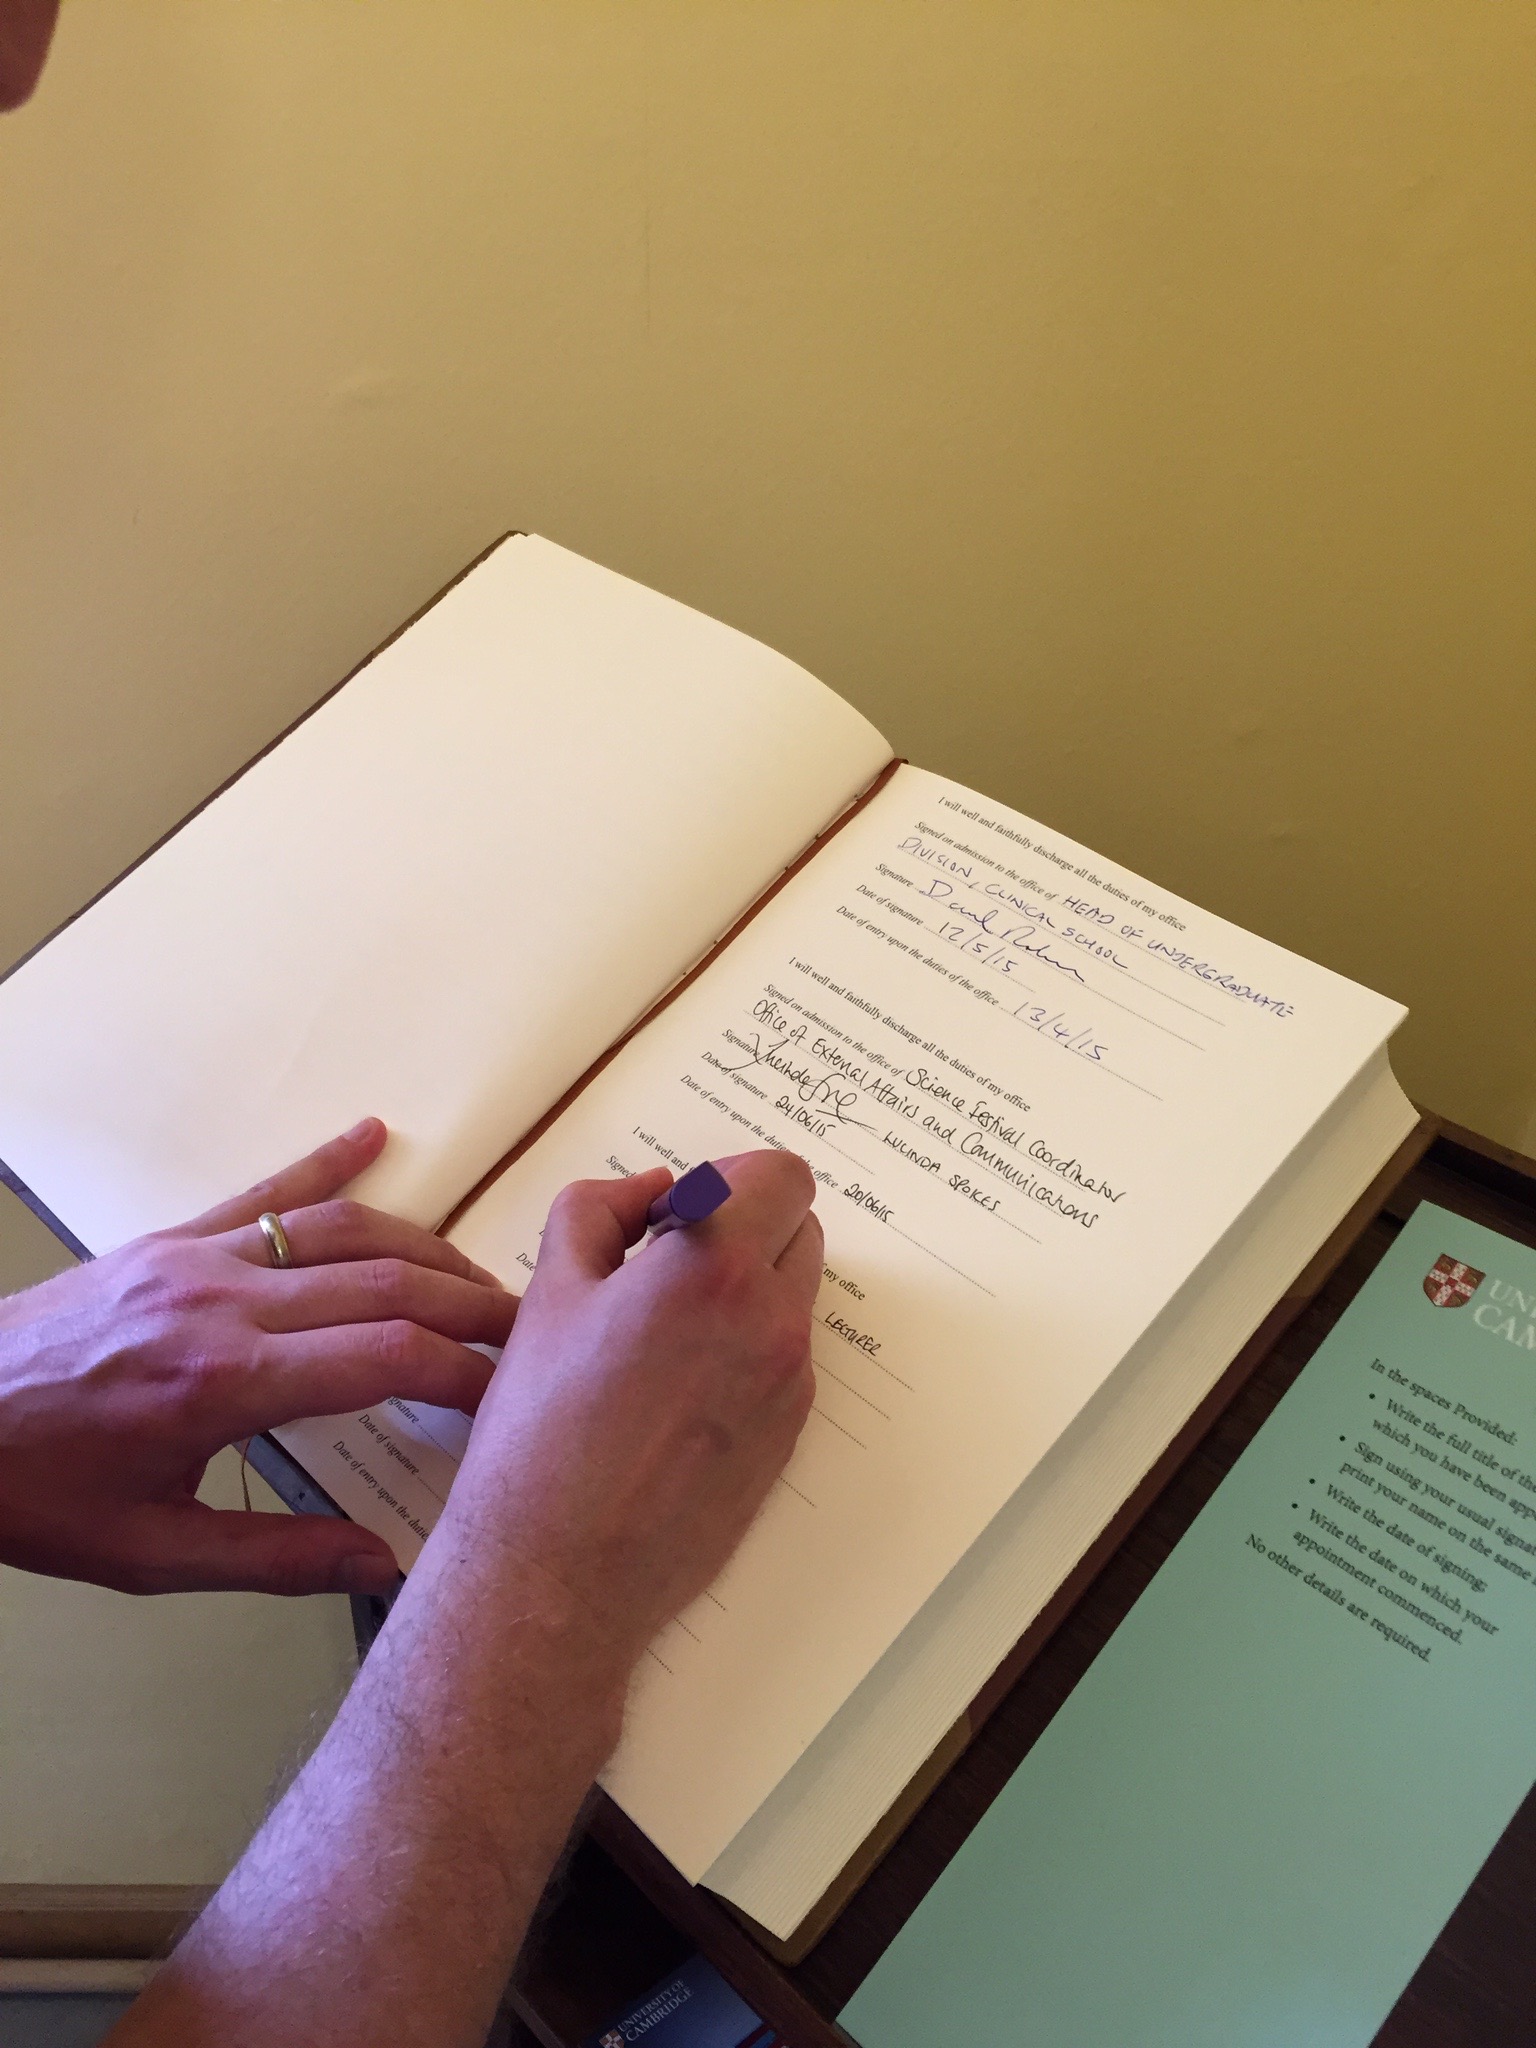 I will well and faithfully discharge all the duties of my office
Signed on admission to the office of HEAD OF UNDERGRADUATE
DIVISION, CLINICAL SCHOOL
Signature
Date of signature 12/5/15
Date of entry upon the duties of the office 13/4/15
I will well and faithfully discharge all the duties of my office
Signed on admission to the office of Science Festival Coordinator
Office of External Affairs and Communications
Signature LUCINDA SPOKES
Date of signature 24/06/15
Date of entry upon the duties of the office 20/06/15
I will well and my office
Signed LECTURER
Date
Date of signature
Date of entry upon the
UNIVERSITY OF
CAMBRIDGE
In the spaces Provided:
• Write the full title of the
which you have been
• Sign using your usual
print your name on the same
• Write the date of signing;
• Write the date on which your
appointment commenced.
No other details are required.